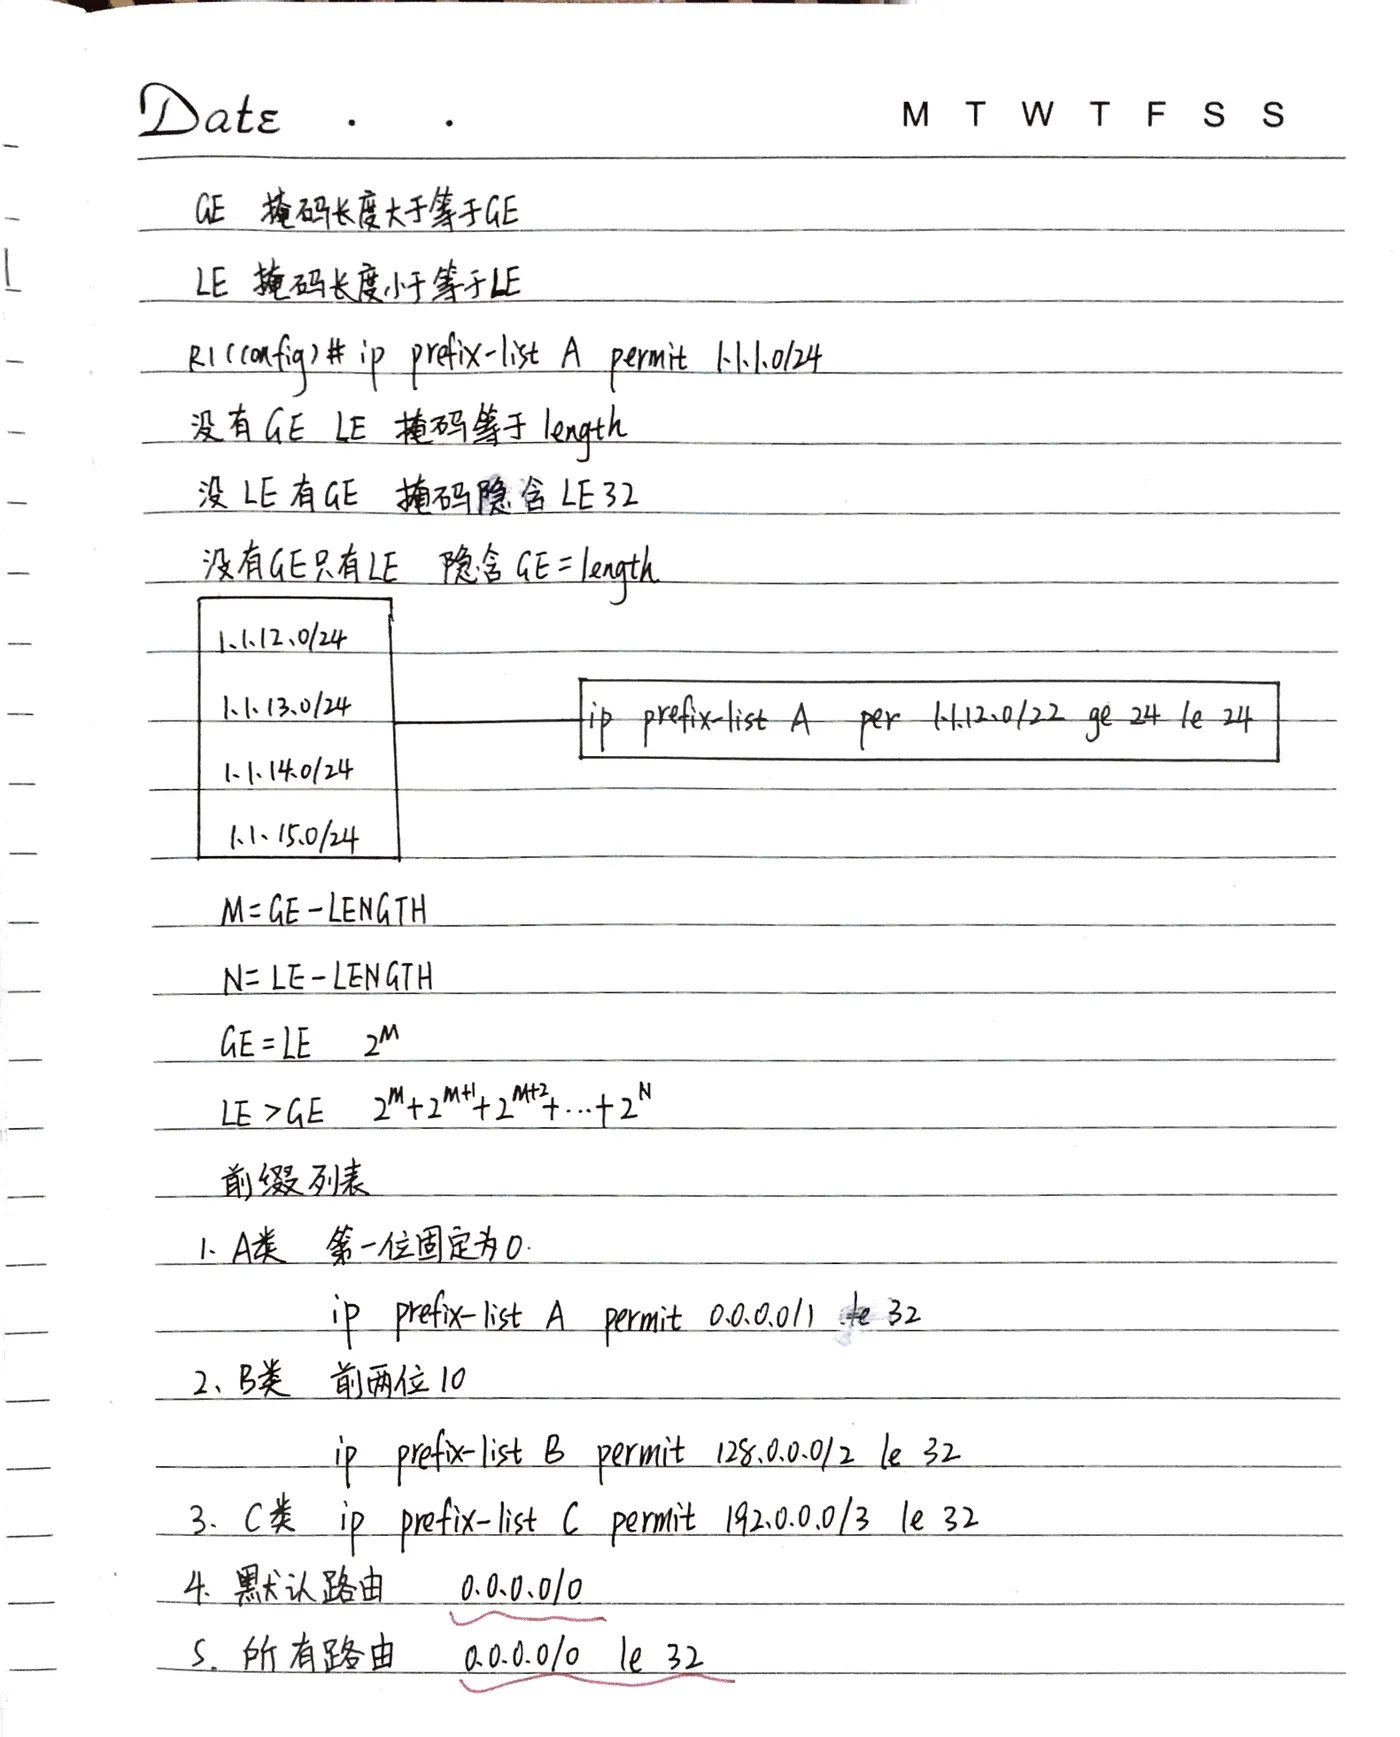 Date . .   M T W T F S S
GE 掩码长度大于等于GE
LE 掩码长度小于等于LE
R1(config)# ip prefix-list A permit 1.1.1.0/24
没有GE LE 掩码等于length
没LE有GE 掩码隐含LE32
没有GE只有LE 隐含GE=length
1.1.12.0/24
1.1.13.0/24
ip prefix-list A per 1.1.12.0/22 ge 24 le 24
1.1.14.0/24
1.1.15.0/24
M=GE-LENGTH
N=LE-LENGTH
GE=LE 2^M
LE>GE 2^M+2^M+1+2^M+2+...+2^N
前缀列表
1. A类 第一位固定为0.
ip prefix-list A permit 0.0.0.0/1 le 32
2、B类 前两位10
ip prefix-list B permit 128.0.0.0/2 le 32
3. C类 ip prefix-list C permit 192.0.0.0/3 le 32
4. 默认路由 0.0.0.0/0
5. 所有路由 0.0.0.0/0 le 32